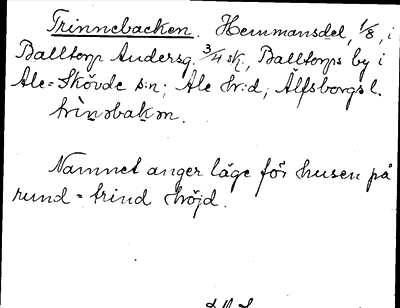 Trinnebacken. Hemmansdel, 1/8, i
Balltorp Andersg. 3/4 sk., Balltorps by i
Ale-Skövde s:n; Ale h:d; Älfsborgs l.
trìnəbakən.
Namnet anger läge för husen på
rund = trind höjd.